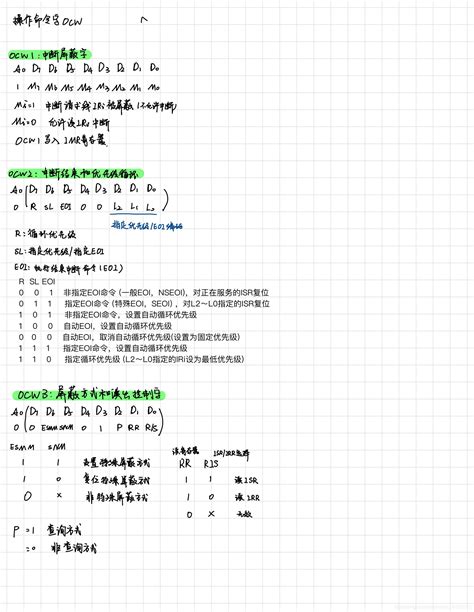 操作命令字 OCW
OCW1:中断屏蔽字
A0 D7 D6 D5 D4 D3 D2 D1 D0
1 M7 M6 M5 M4 M3 M2 M1 M0
Mi=1 中断请求线IRi被屏蔽(不允许中断)
Mi=0 允许该IRi中断
OCW1写入IMR寄存器
OCW2:中断结束和优先级循环
A0 (D7 D6 D5 D4 D3 D2 D1 D0
0 R SL EOI 0 0 L2 L1 L0)
指定优先级/EOI编码
R:循环优先级
SL:指定优先级/指定EOI
EOI:中断结束命令(EOI)
R SL EOI
0 0 1 非指定EOI命令 (一般EOI, NSEOI),对正在服务的ISR复位
0 1 1 指定EOI命令 (特殊EOI, SEOI),对L2~L0指定的ISR复位
1 0 1 非指定EOI命令,设置自动循环优先级
1 0 0 自动EOI,设置自动循环优先级
0 0 0 自动EOI,取消自动循环优先级(设置为固定优先级)
1 1 1 指定EOI命令,设置自动循环优先级
1 1 0 指定循环优先级 (L2~L0指定的IRi设为最低优先级)
OCW3:屏蔽方式和读出控制字
A0 (D7 D6 D5 D4 D3 D2 D1 D0
0 (0 ESMM SMM 0 1 P RR RIS)
ESMM SMM 读寄存器 ISR/IRR选择
1 1 设置特殊屏蔽方式 RR RIS
1 0 复位特殊屏蔽方式 1 1 读ISR
0 × 非特殊屏蔽方式 1 0 读IRR
0 × 无效
P =1 查询方式
=0 非查询方式